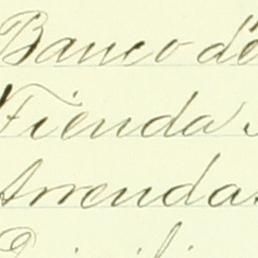 Banco de
Tienda
Arrenda